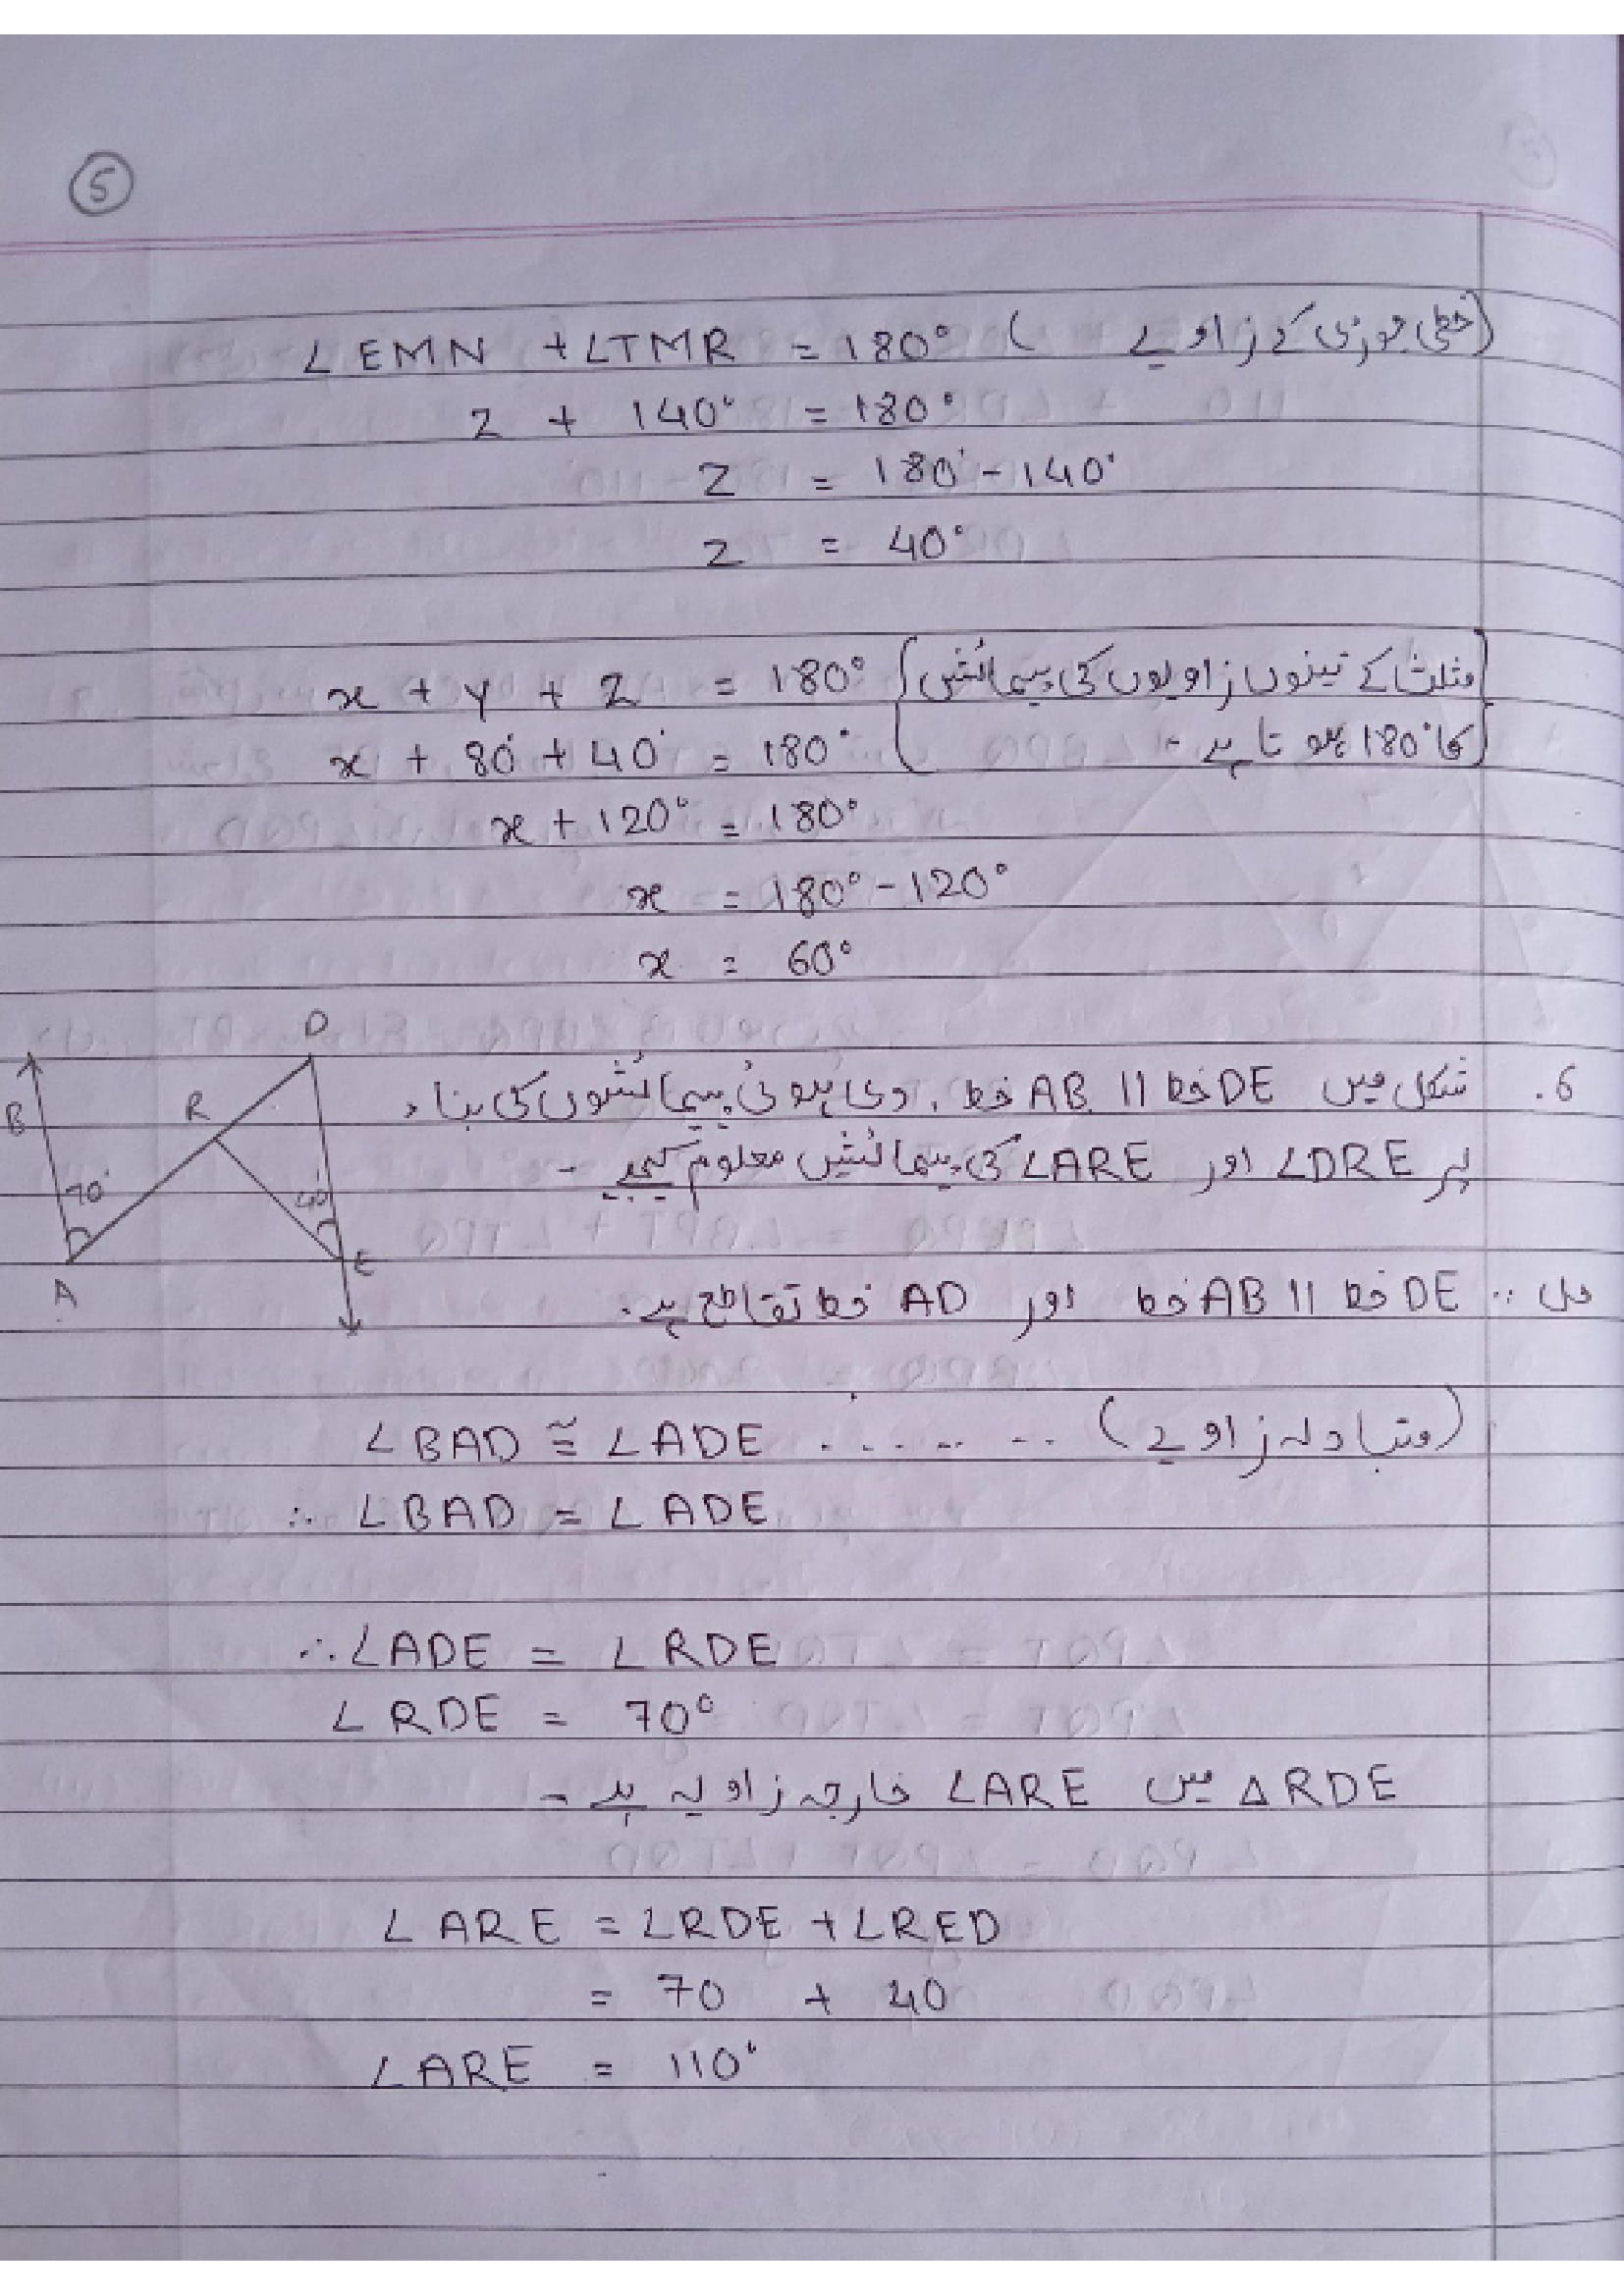 5
∠EMN + ∠TMR = 180° (خطی جوڑی کے زاویے)
z + 140° = 180°
z = 180° - 140°
z = 40°
x + y + z = 180° (مثلث کے تینوں زاویوں کی پیمائش
x + 80° + 40° = 180° کا 180° ہوتا ہے -)
x + 120° = 180°
x = 180° - 120°
x = 60°
6. شکل میں DE خط || AB خط، دی ہوئی پیمائشوں کی بناء
پر ∠DRE اور ∠ARE کی پیمائشیں معلوم کیجیے -
D
B
R
70°
40°
A
E
حل :: DE خط || AB خط اور AD خط تقاطع ہے.
∠BAD ≅ ∠ADE ........ (متبادلہ زاویے)
∴ ∠BAD = ∠ADE
∴ ∠ADE = ∠RDE
∠RDE = 70°
△RDE میں ∠ARE خارجہ زاویہ ہے -
∠ARE = ∠RDE + ∠RED
= 70 + 40
∠ARE = 110°